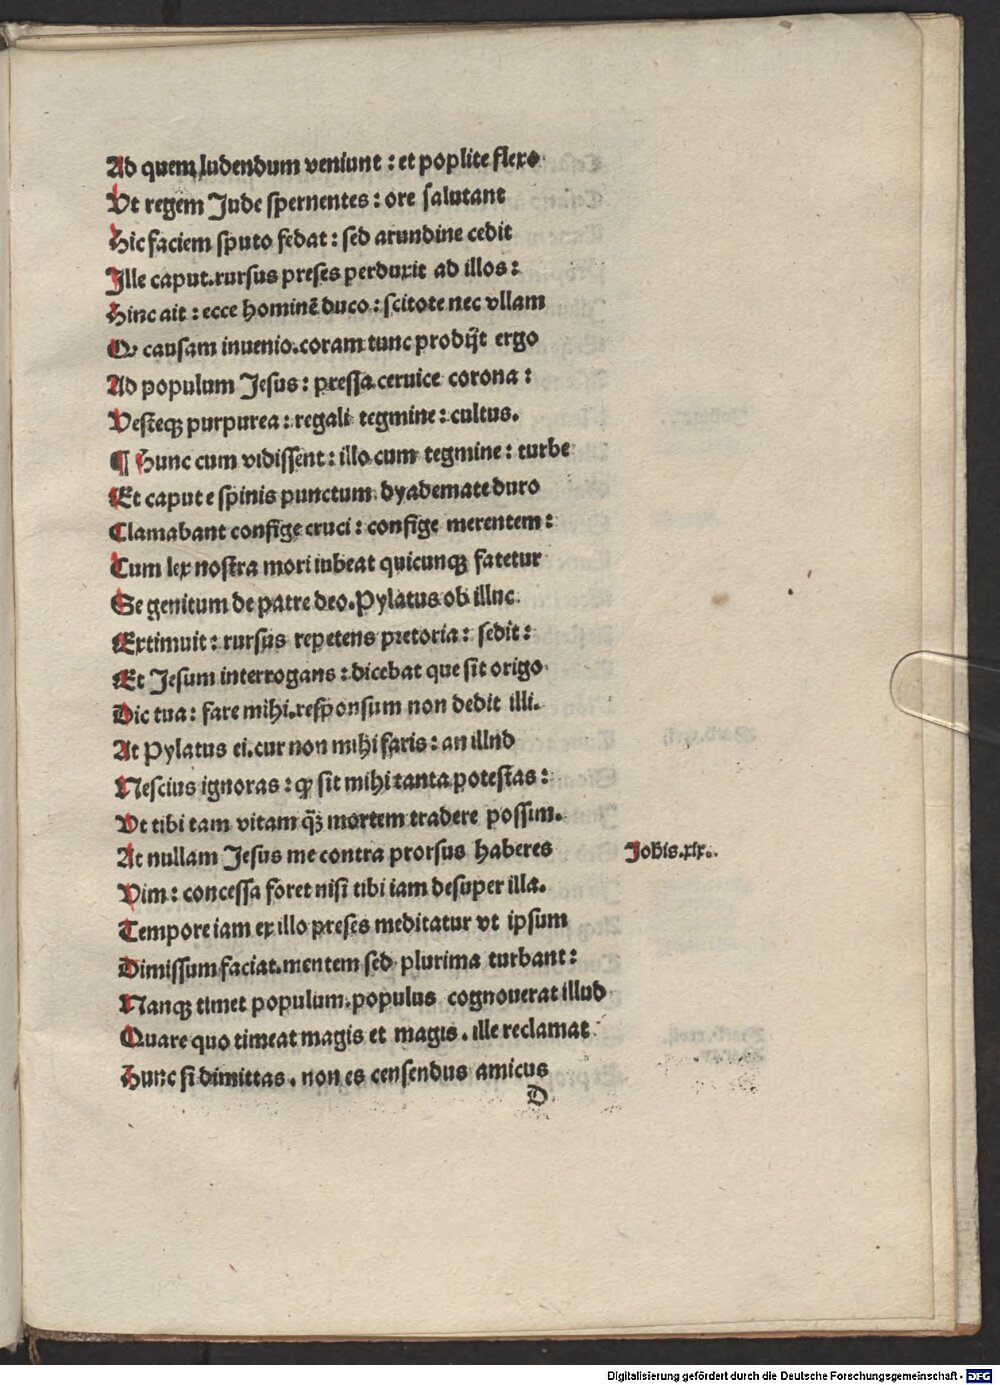 Ad quem ludendum veniunt : et poplite flexo
Vt regem Jude spernentes : ore salutant
Hic faciem sputo fedat : sed arundine cedit
Ille caput. rursus preses perduxit ad illos :
Hinc ait : ecce hominē duco : scitote nec vllam
Qꝛ causam inuenio. coram tunc prodijt ergo
Ad populum Jesus : pressa ceruice corona :
Vesteqꝫ purpurea : regali tegmine : cultus.
¶ Hunc cum vidissent : illo cum tegmine : turbe
Et caput e spinis punctum dyademate duro
Clamabant confige cruci : confige merentem :
Cum lex nostra mori iubeat quicunqꝫ fatetur
Se genitum de patre deo. Pylatus ob illuc
Extimuit : rursus repetens pretoria : sedit :
Et Jesum interrogans : dicebat que sit origo
Dic tua : fare mihi. responsum non dedit illi.
At Pylatus ei. cur non mihi faris : an illud
Nescius ignoras : ꝙ sit mihi tanta potestas :
Vt tibi tam vitam qꝫ̄ mortem tradere possim.
At nullam Jesus me contra prorsus haberes
Johis. xix.
Vim : concessa foret nisi tibi iam desuper illa.
Tempore iam ex illo preses meditatur vt ipsum
Dimissum faciat. mentem sed plurima turbant :
Nanqꝫ timet populum. populus cognouerat illud
Quare quo timeat magis et magis. ille reclamat
Hunc si dimittas. non es censendus amicus
D
Digitalisierung gefördert durch die Deutsche Forschungsgemeinschaft - DFG